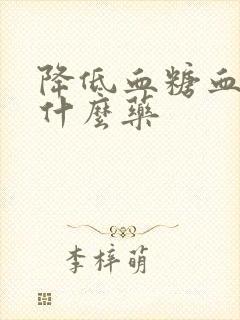 降低血糖血
什麼藥
李梓萌